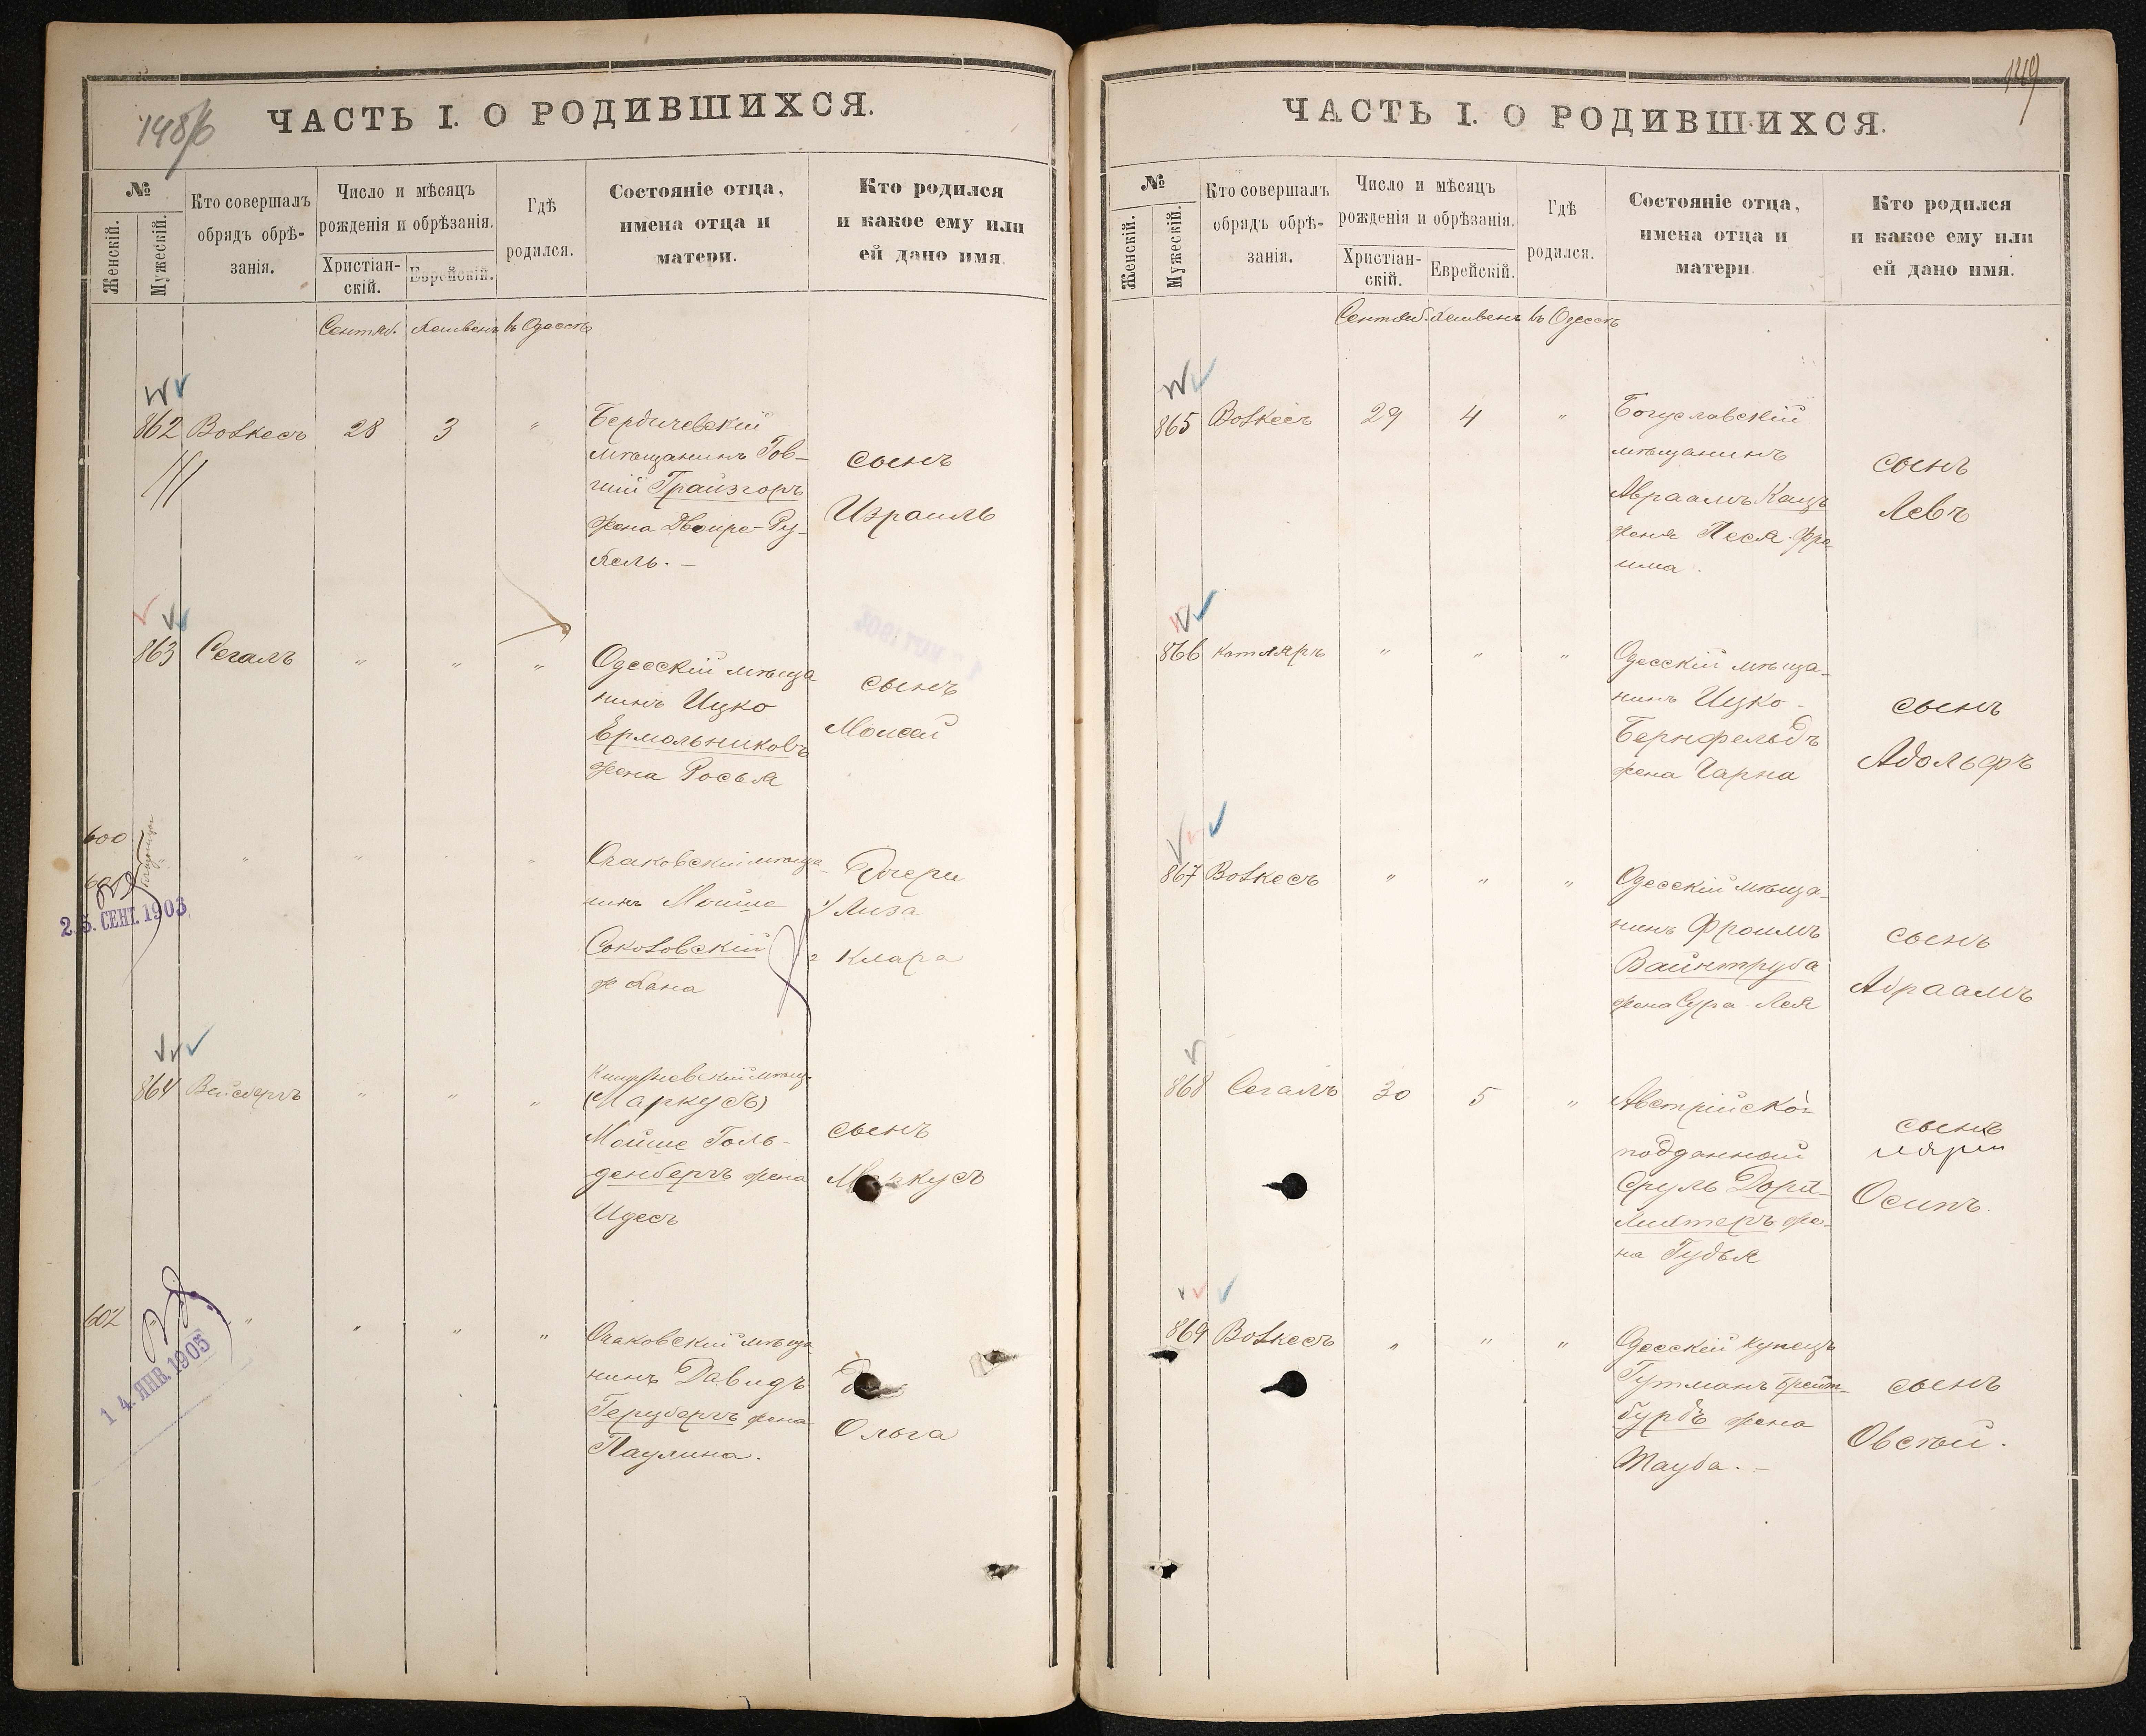 148/б
ЧАСТЬ I. О РОДИВШИХСЯ.
№
Женскій.
Мужескій.
Кто совершалъ
обрядъ обрѣ-
занія.
Число и мѣсяцъ
рожденія и обрѣзанія.
Христіан-
скій.
Еврейскій.
Гдѣ
родился.
Состояніе отца,
имена отца и
матери.
Кто родился
и какое ему или
ей дано имя.
Сентяб. Хешвенъ въ Одессѣ
862 Вовкесъ 28 3 "
Бердичевскій
мѣщанинъ Гов-
шій Грайзгоръ
жена Двойре-Ру-
хель. –
сынъ
Израиль
863 Сегалъ " " "
Одесскій мѣща
нинъ Ицко
Ермольниковъ
жена Росья
сынъ
Моисей
600
601
" " " "
25. СЕНТ. 1903
Очаковскій мѣща-
нинъ Мойше
Соковский
ж Хана
Дочери
1/ Лиза
2 Клара
864 Вейсбергъ " " "
Кишиневскій мѣщ.
(Маркусъ)
Мойше Голь-
денбергъ жена
Идесъ
сынъ
Маркусъ
602 " " " " "
14. ЯНВ. 1905
Очаковскій мѣща
нинъ Давидъ
Герцбергъ жена
Паулина.
Ольга
149
ЧАСТЬ I. О РОДИВШИХСЯ.
№
Женскій.
Мужескій.
Кто совершалъ
обрядъ обрѣ-
занія.
Число и мѣсяцъ
рожденія и обрѣзанія.
Христіан-
скій.
Еврейскій.
Гдѣ
родился.
Состояніе отца,
имена отца и
матери.
Кто родился
и какое ему или
ей дано имя.
Сентяб. Хешвенъ въ Одессѣ
865 Вовкесъ 29 4 "
Богуславскій
мѣщанинъ
Авраамъ Кацъ
жена Песя-Фра
има.
сынъ
Левъ
866 Котляръ " " "
Одесскій мѣща-
нинъ Ицко-
Бернфельдъ
жена Чарна
сынъ
Адольфъ
867 Вовкесъ " " "
Одесскій мѣща-
нинъ Фроимъ
Вайнтруба
жена Сура-Лея
сынъ
Абраамъ
868 Сегалъ 30 5 "
Австрійско-
подданный
Сруль
на Гудья
сынъ
Осипъ.
869 Вовкесъ " " "
Одесскій купецъ
Гутманъ Брейт-
бурдъ жена
Тауба. –
сынъ
Овсѣй.